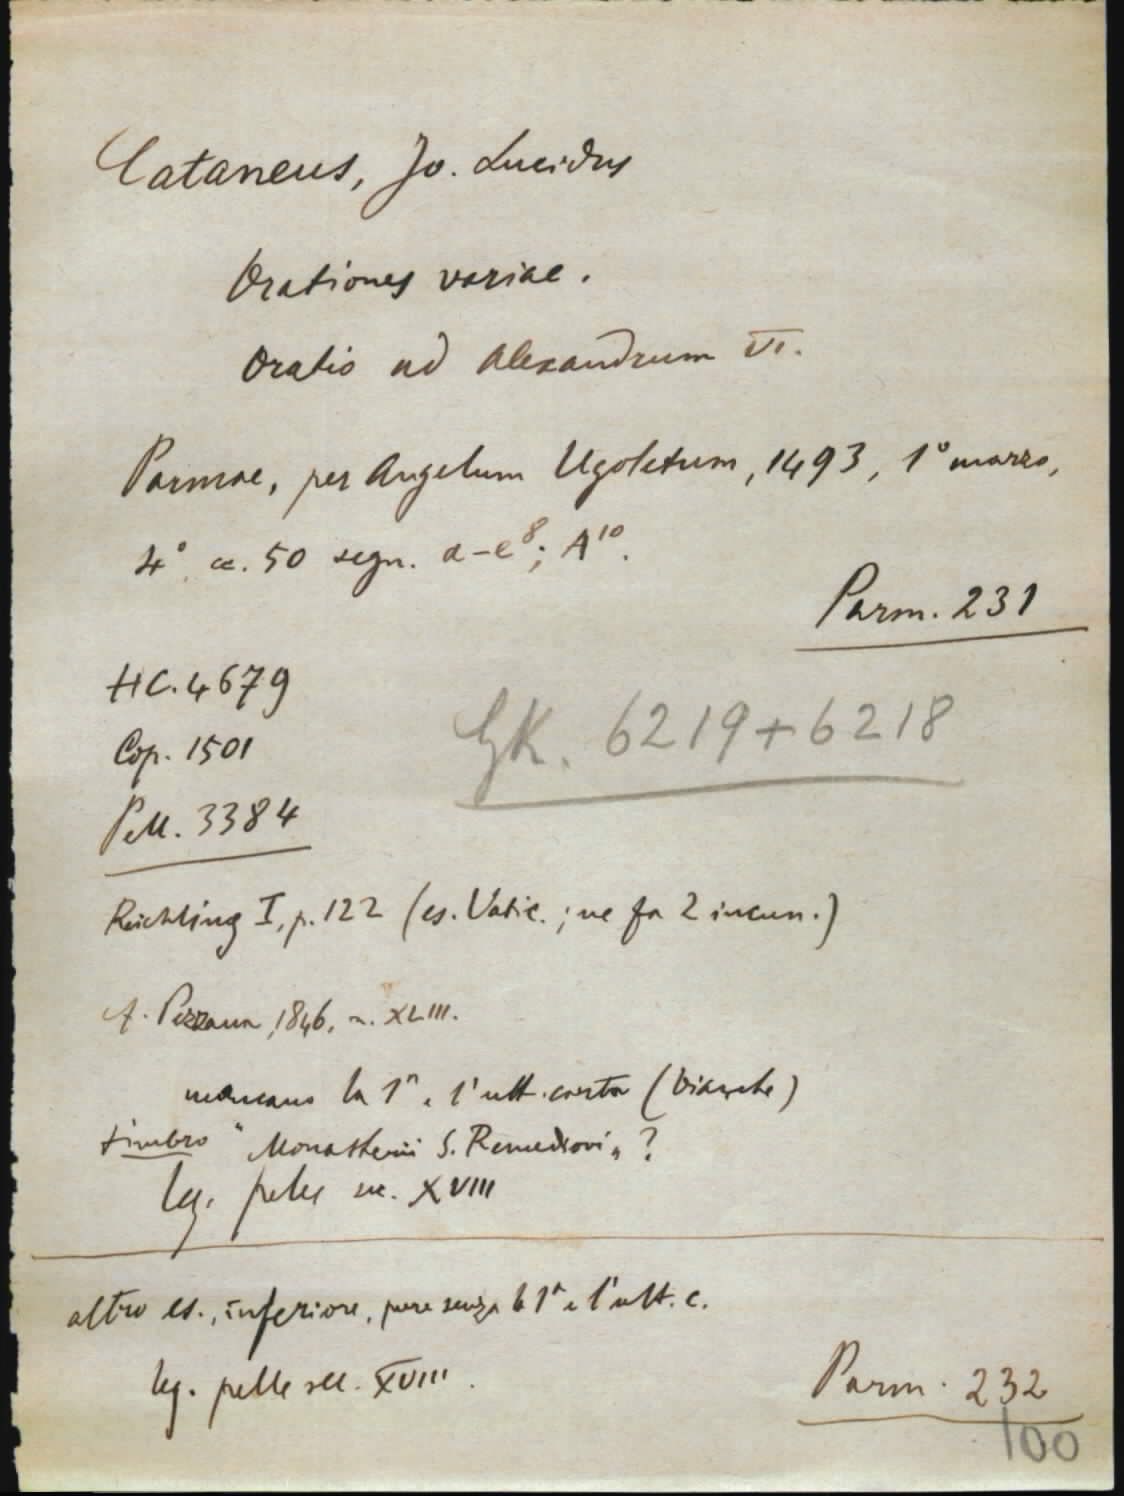 Cataneus, Jo. Lucidus
Orationes variae.
Oratio ad Alexandrum VI.
Parmae, per Angelum Ugoletum, 1493, 1° marzo,
4° cc. 50 segn. a-e⁸; A¹⁰.
Parm. 231
HC. 4679
GK. 6219+6218
Cop. 1501
Pell. 3384
Reichling I, p. 122 (es. Vatic.; ne fa 2 incun.)
cf. Pezzana, 1846, n. XLIII.
mancano la 1ª e l'ult. carta (bianche)
timbro "Monasterii S. Remedii" ?
leg. pelle sec. XVIII
altro es., inferiore, pure senza la 1ª e l'ult. c.
leg. pelle sec. XVIII.
Parm. 232
100